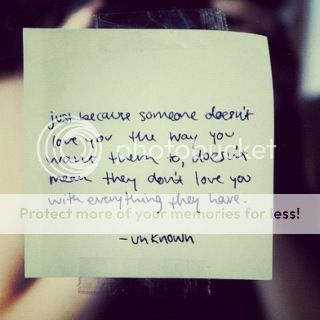 just because someone doesn't
love you the way you
want them to, doesn't
mean they don't love you
with everything they have.
-unknown
photobucket
Protect more of your memories for less!